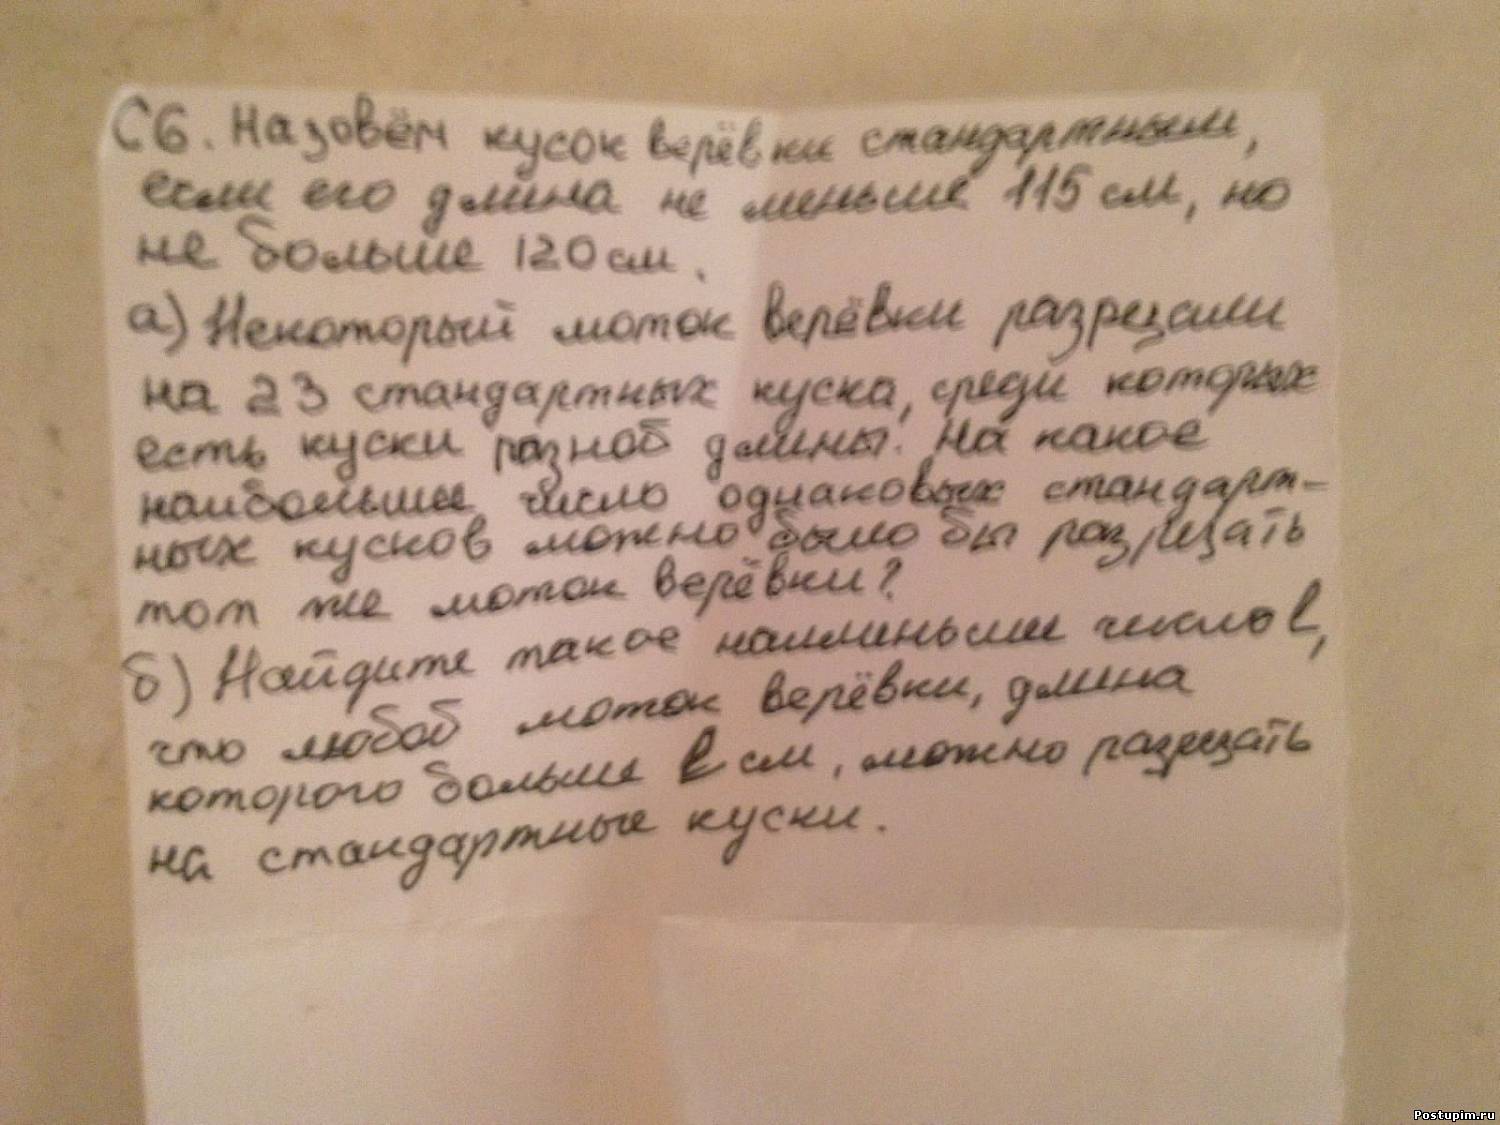 С6. Назовём кусок верёвки стандартным,
если его длина не меньше 115 см, но
не больше 120 см.
а) Некоторый моток верёвки разрезали
на 23 стандартных куска, среди которых
есть куски разной длины. На какое
наибольшее число одинаковых стандарт-
ных кусков можно было бы разрезать
тот же моток верёвки?
б) Найдите такое наименьшее число l,
что любой моток верёвки, длина
которого больше l см, можно разрезать
на стандартные куски.
Postupim.ru